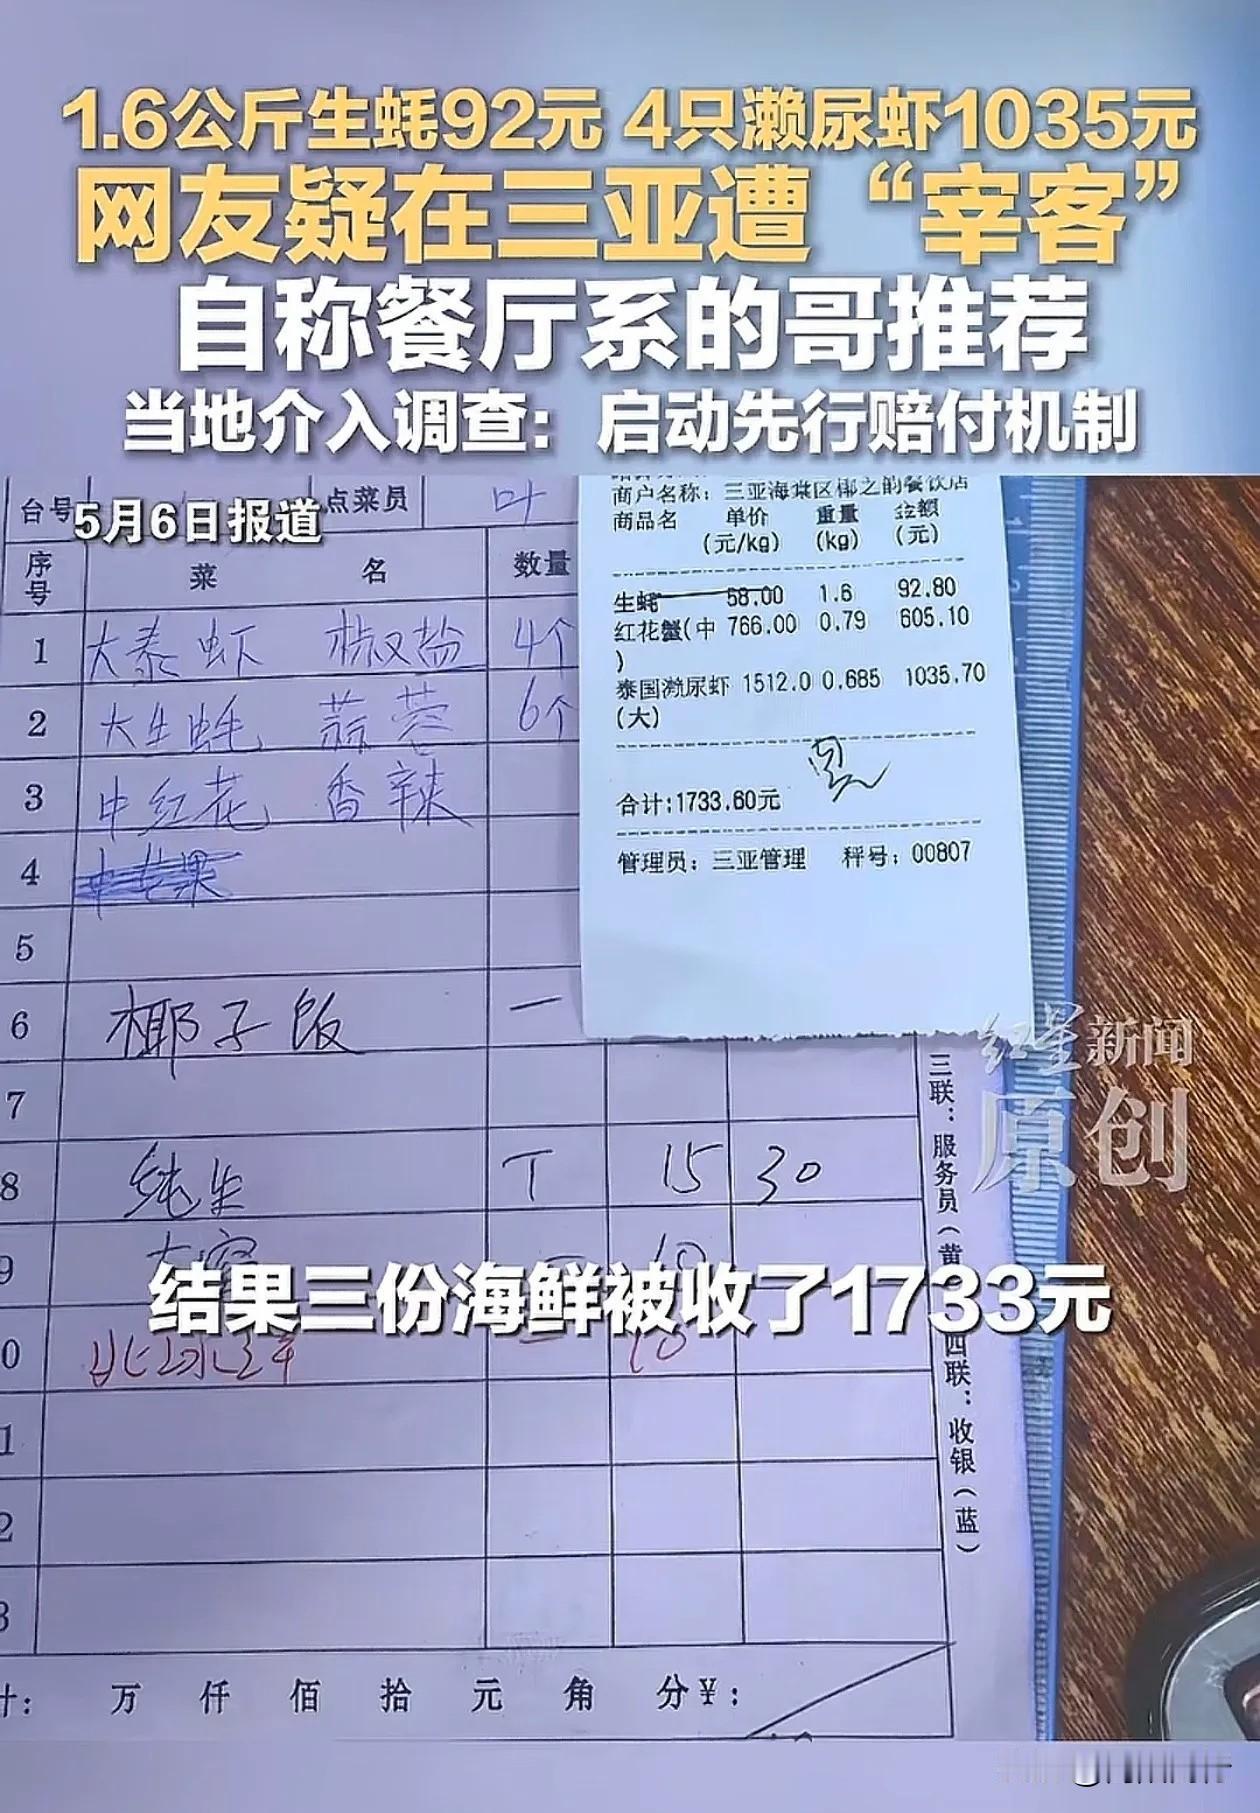 1.6公斤生蚝92元 4只濑尿虾1035元
网友疑在三亚遭“宰客”
自称餐厅系的哥推荐
当地介入调查：启动先行赔付机制
5月6日报道
台号 点菜员 叶
序号 菜 名 数量
1 大泰虾 椒盐 4个
2 大生蚝 蒜蓉 6个
3 中红花 香辣
4
5
6 椰子饭 一
7
8 纯生 T 15 30
9 10
0 10
1
2
3
计： 万 仟 佰 拾 元 角 分 ¥：
商户名称：三亚海棠区椰之韵餐饮店
商品名 单价 重量 金额
(元/kg) (kg) (元)
生蚝 58.00 1.6 92.80
红花蟹(中 766.00 0.79 605.10
)
泰国濑尿虾 1512.0 0.685 1035.70
(大)
合计:1733.60元
管理员：三亚管理 秤号：00807
三联：服务员(黄
四联：收银(蓝)
红星新闻
原创
结果三份海鲜被收了1733元